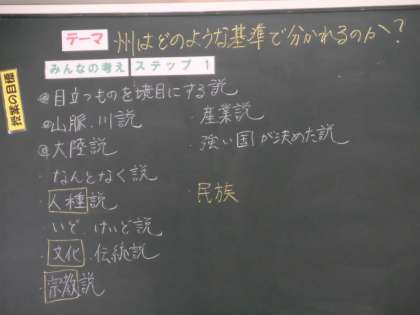 テーマ 州はどのような基準で分かれるのか?
みんなの考え ステップ 1
授業の目標
◎目立つものを境目にする説
◎山脈、川説
◎大陸説
・なんとなく説
・人種説
・いど、けいど説
・文化、伝統説
・宗教説
・産業説
・強い国が決めた説
・民族